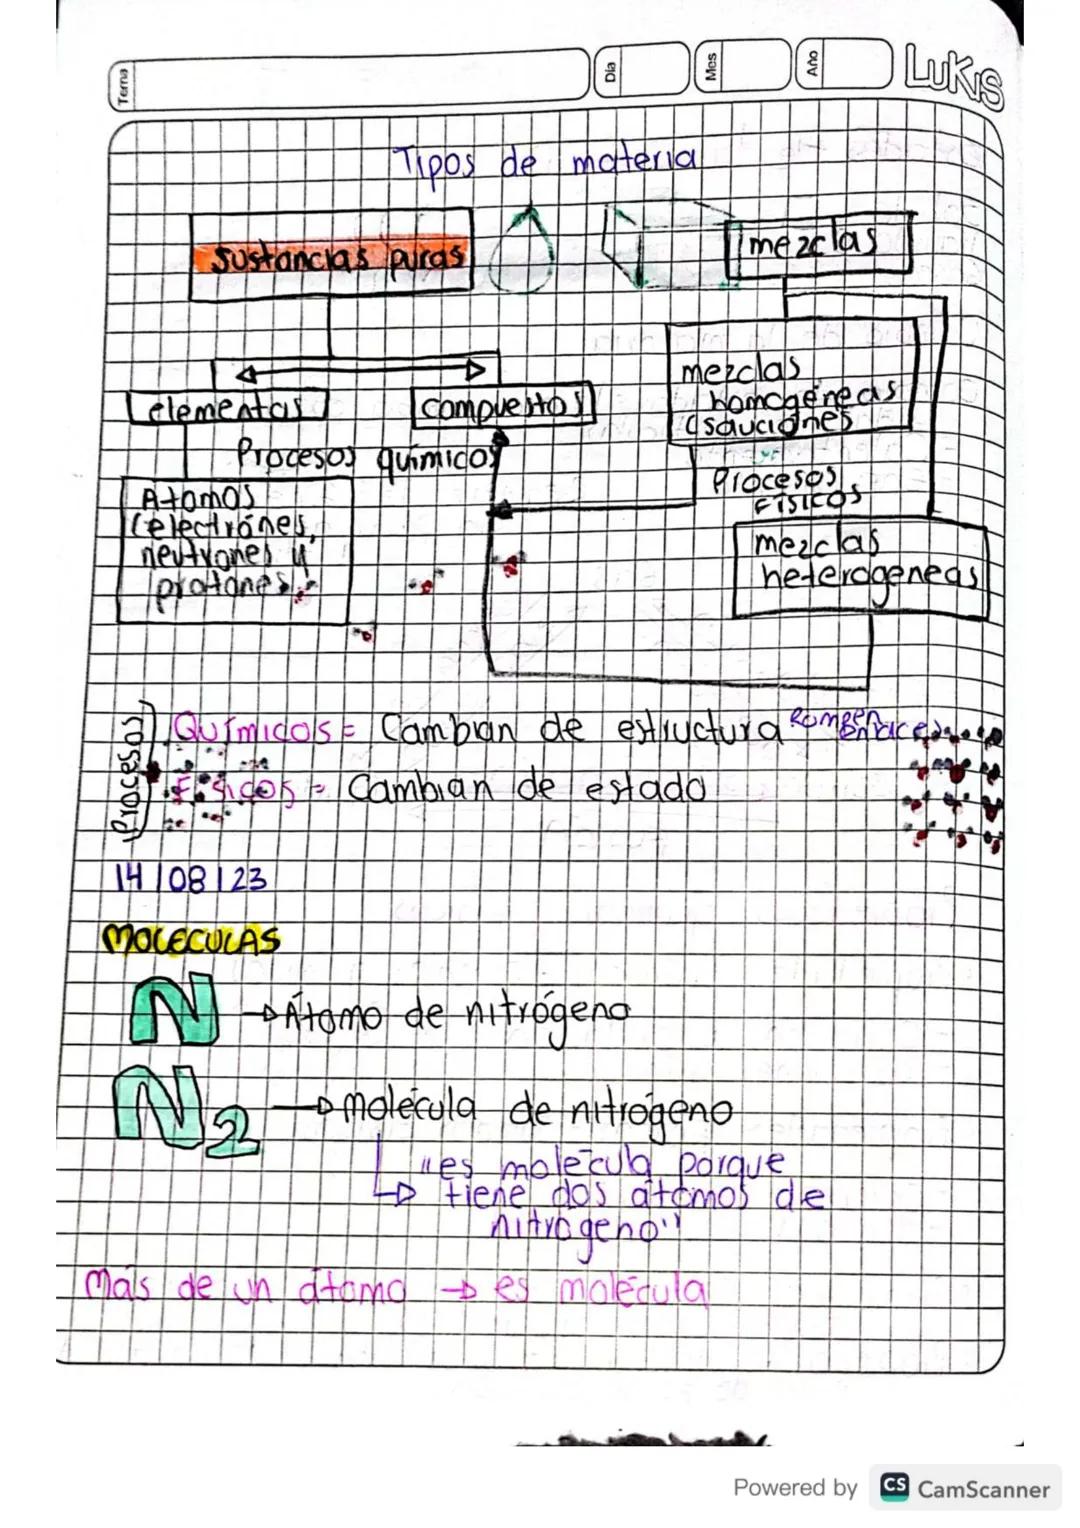 Tema
Dia
Mes
Año
LUKIS
Tipos de materia
Sustancias puras
mezclas
elementos
compuestos
Procesos químicos
Atomos
(electrónes,
neutrones y
protones.
mezclas
homogéneas
(sauciones
Procesos
Físicos
mezclas
heterogeneas
(Procesos)
Químicos = Cambian de estructura Rompen enlaces
Físicos = Cambian de estado
14/08/23
MOLECULAS
N → Átomo de nitrógeno
N2 → molécula de nitrógeno
"es molécula porque
tiene dos átomos de
nitrogeno"
Más de un átomo → es molécula
Powered by CS CamScanner